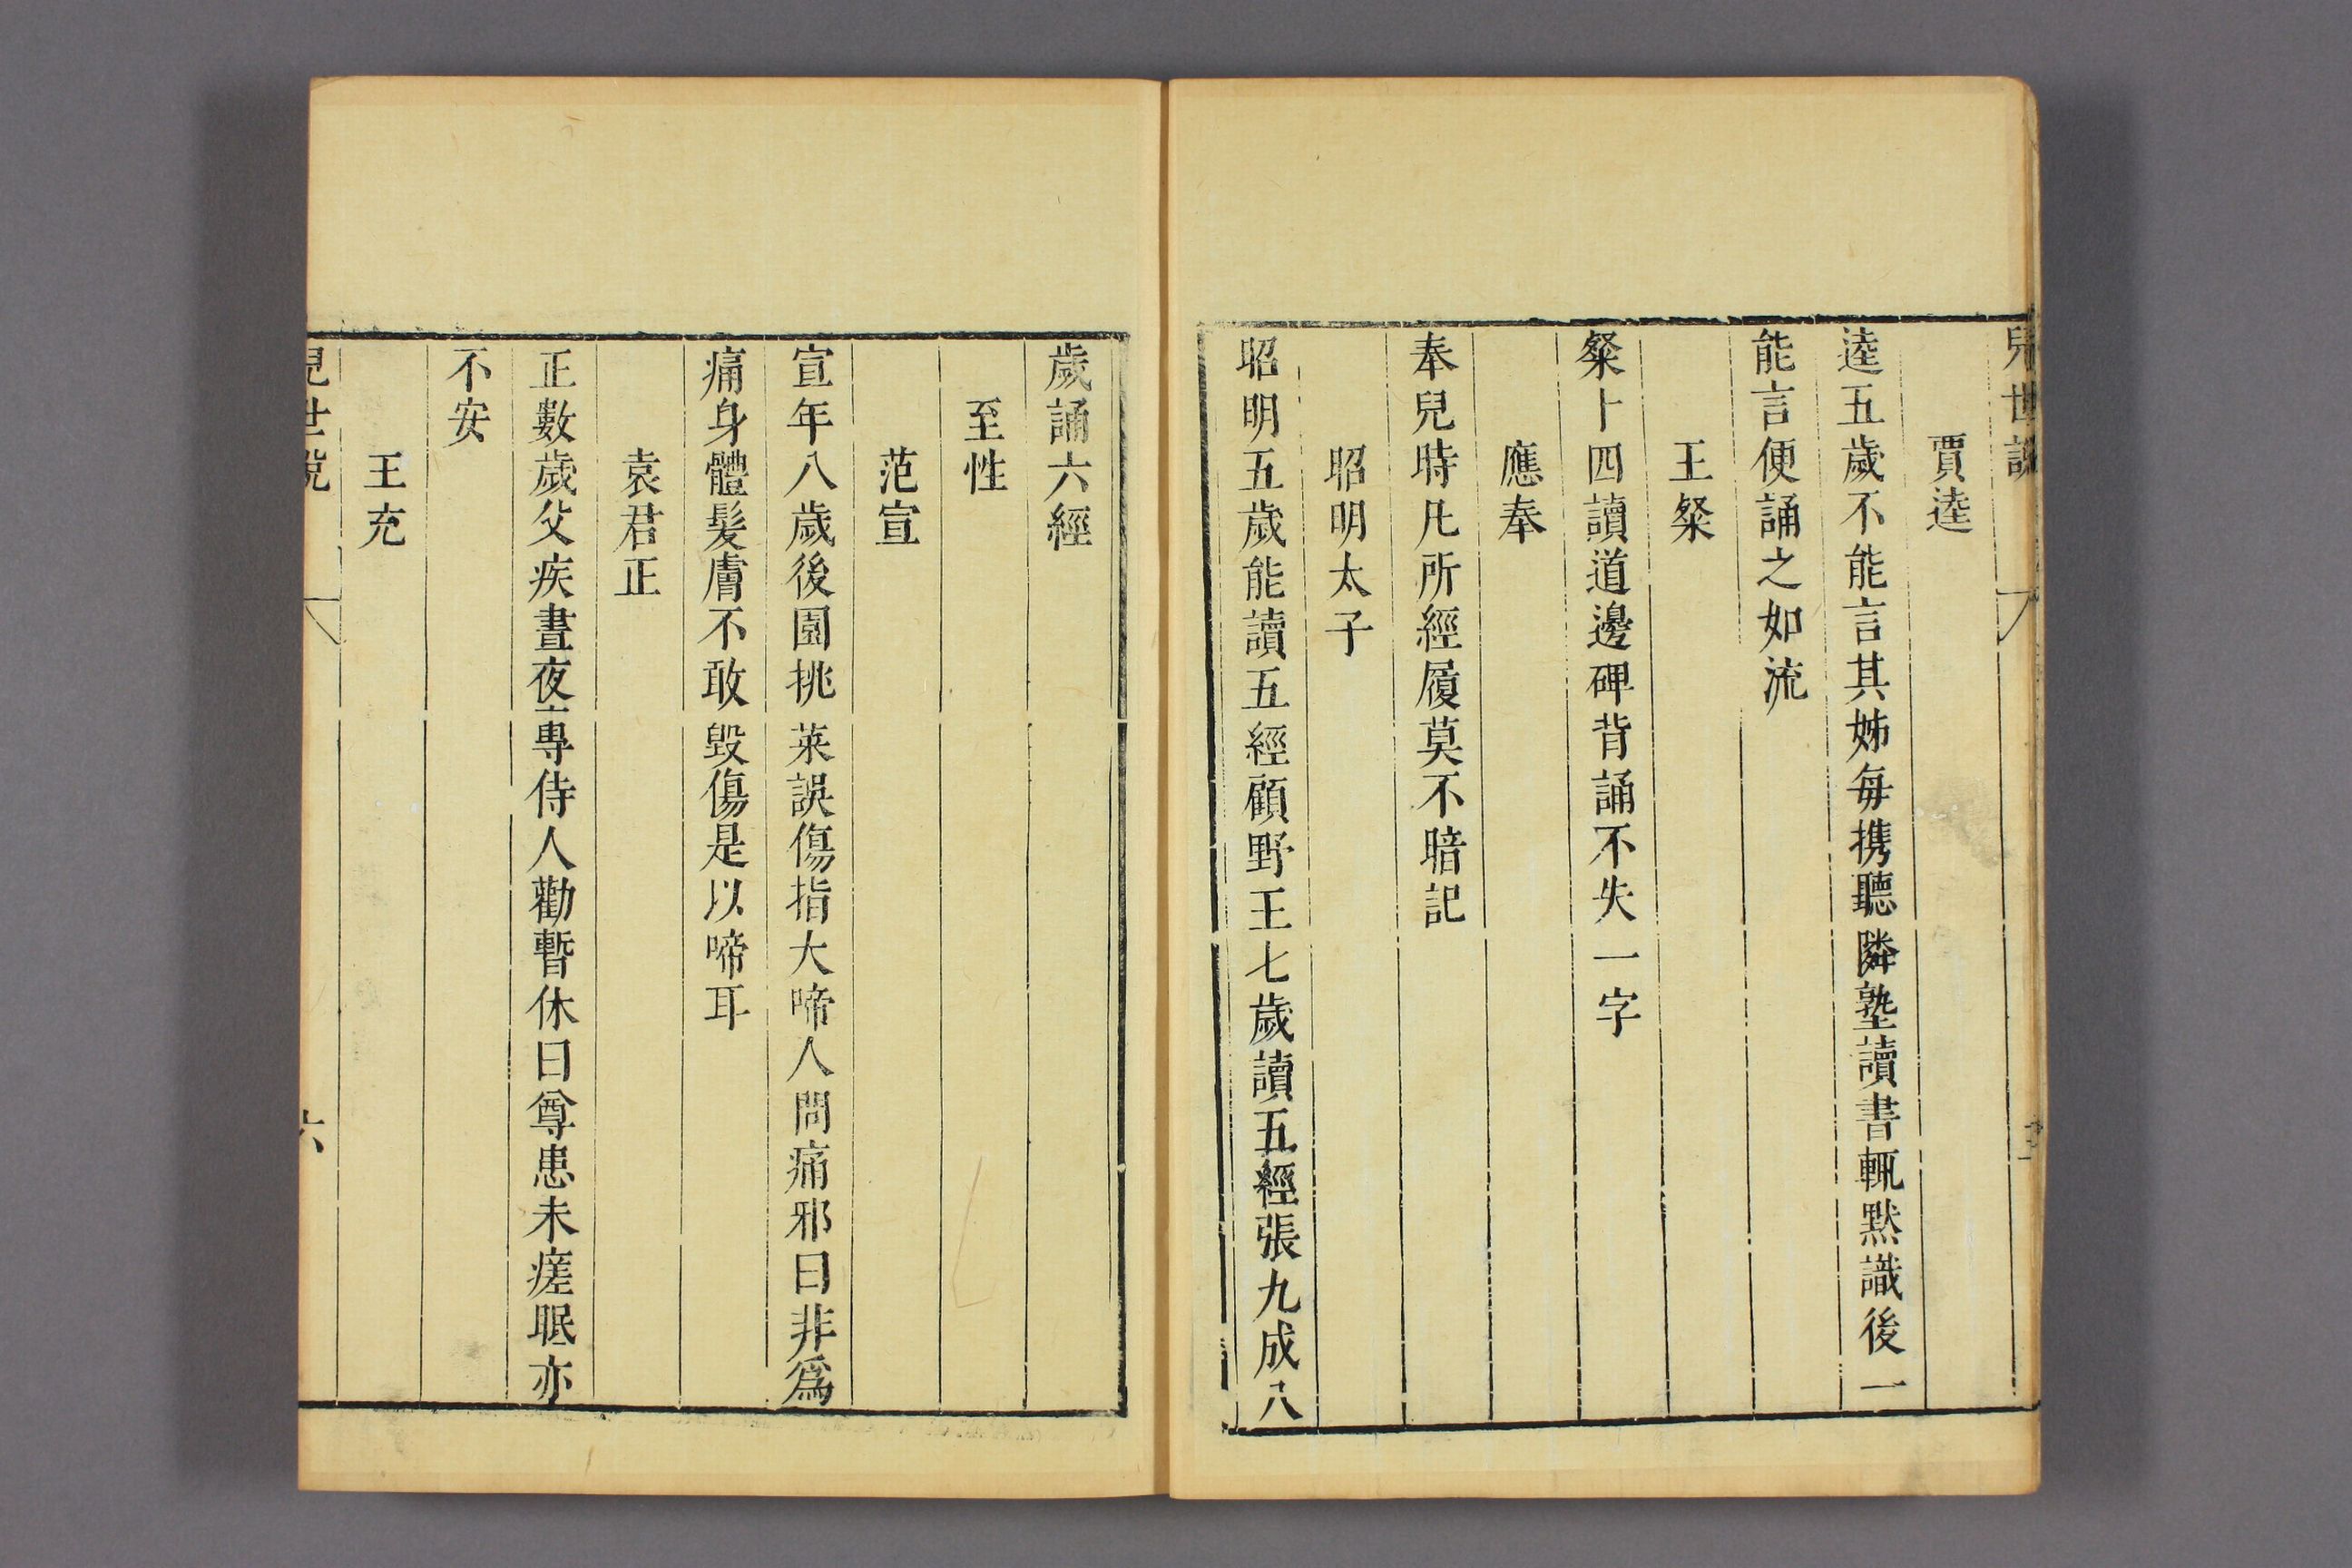 兒世說
賈逵
逵五歲不能言其姊每携聽隣塾讀書輒黙識後一
能言便誦之如流
王粲
粲十四讀道邊碑背誦不失一字
應奉
奉兒時凡所經履莫不暗記
昭明太子
昭明五歲能讀五經顧野王七歲讀五經張九成八
歲誦六經
至性
范宣
宣年八歲後園挑菜誤傷指大啼人問痛邪曰非爲
痛身體髮膚不敢毀傷是以啼耳
袁君正
正數歲父疾晝夜專侍人勸暫休曰尊患未瘥眠亦
不安
王充
兒世說
六